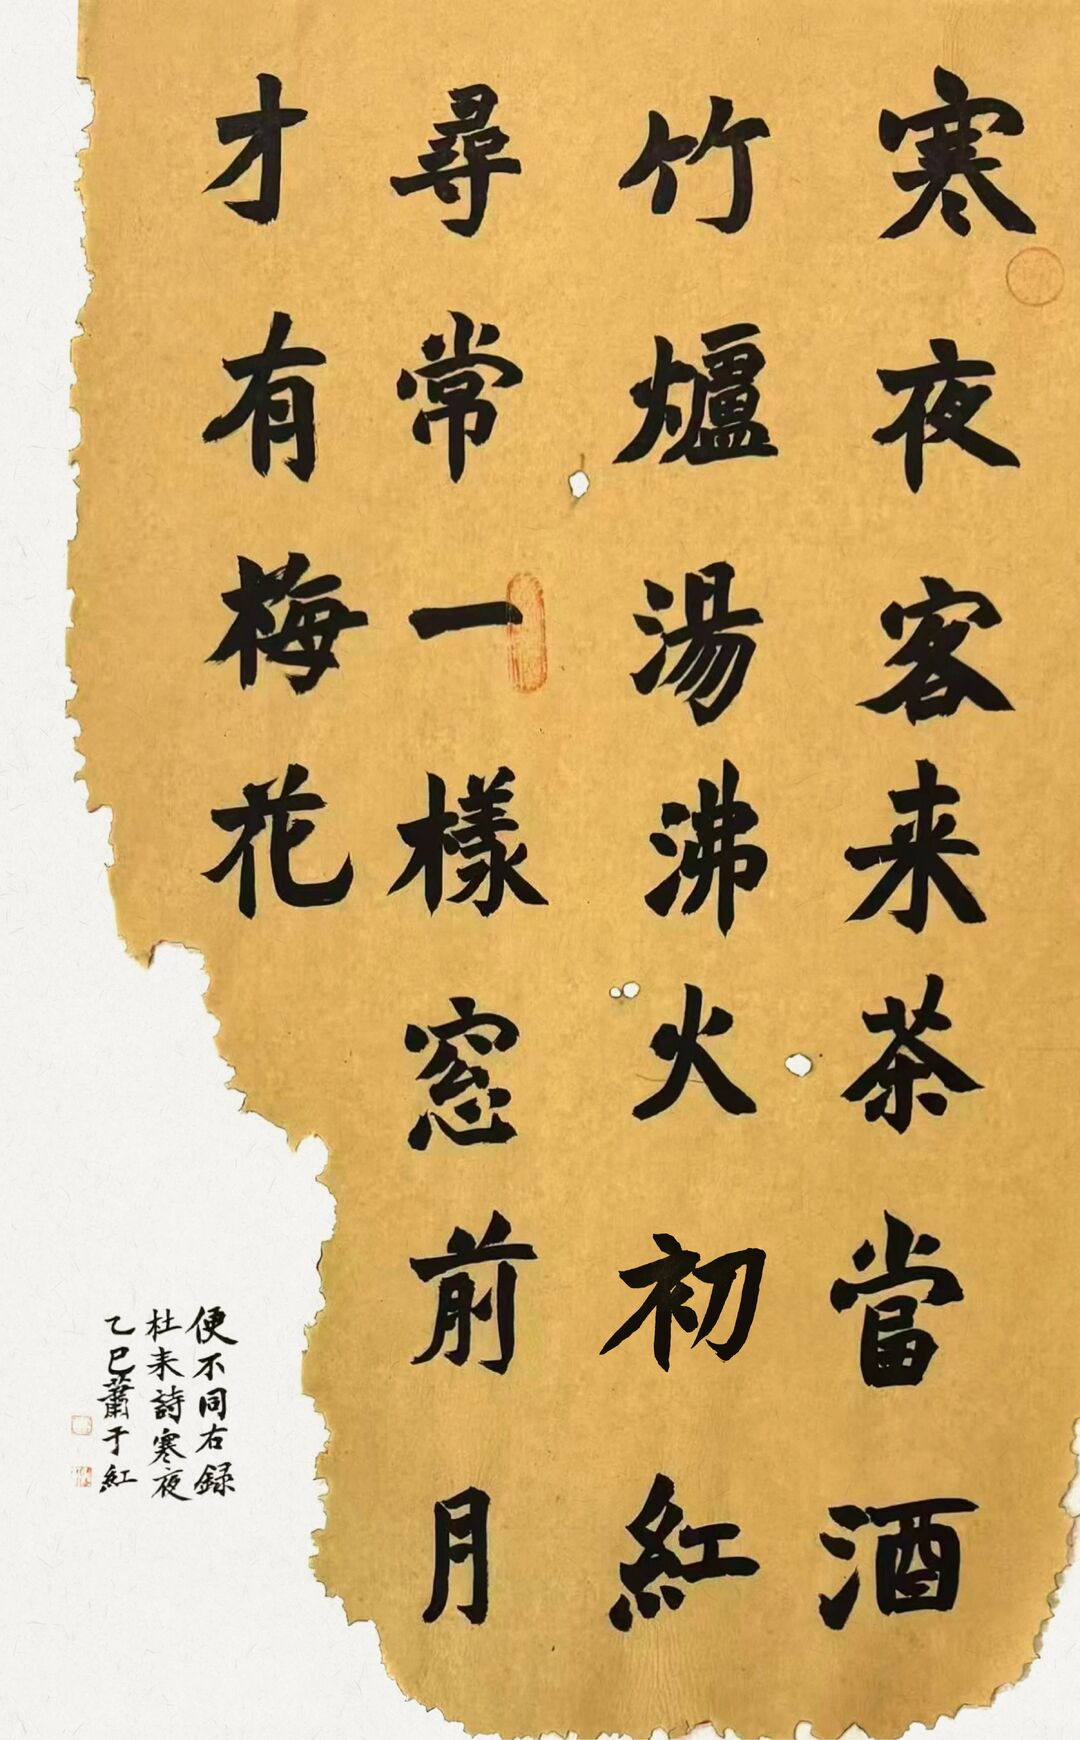 寒夜客来茶當酒
竹爐湯沸火初紅
尋常一樣窓前月
才有梅花
便不同右録
杜耒詩寒夜
乙巳蕭于紅